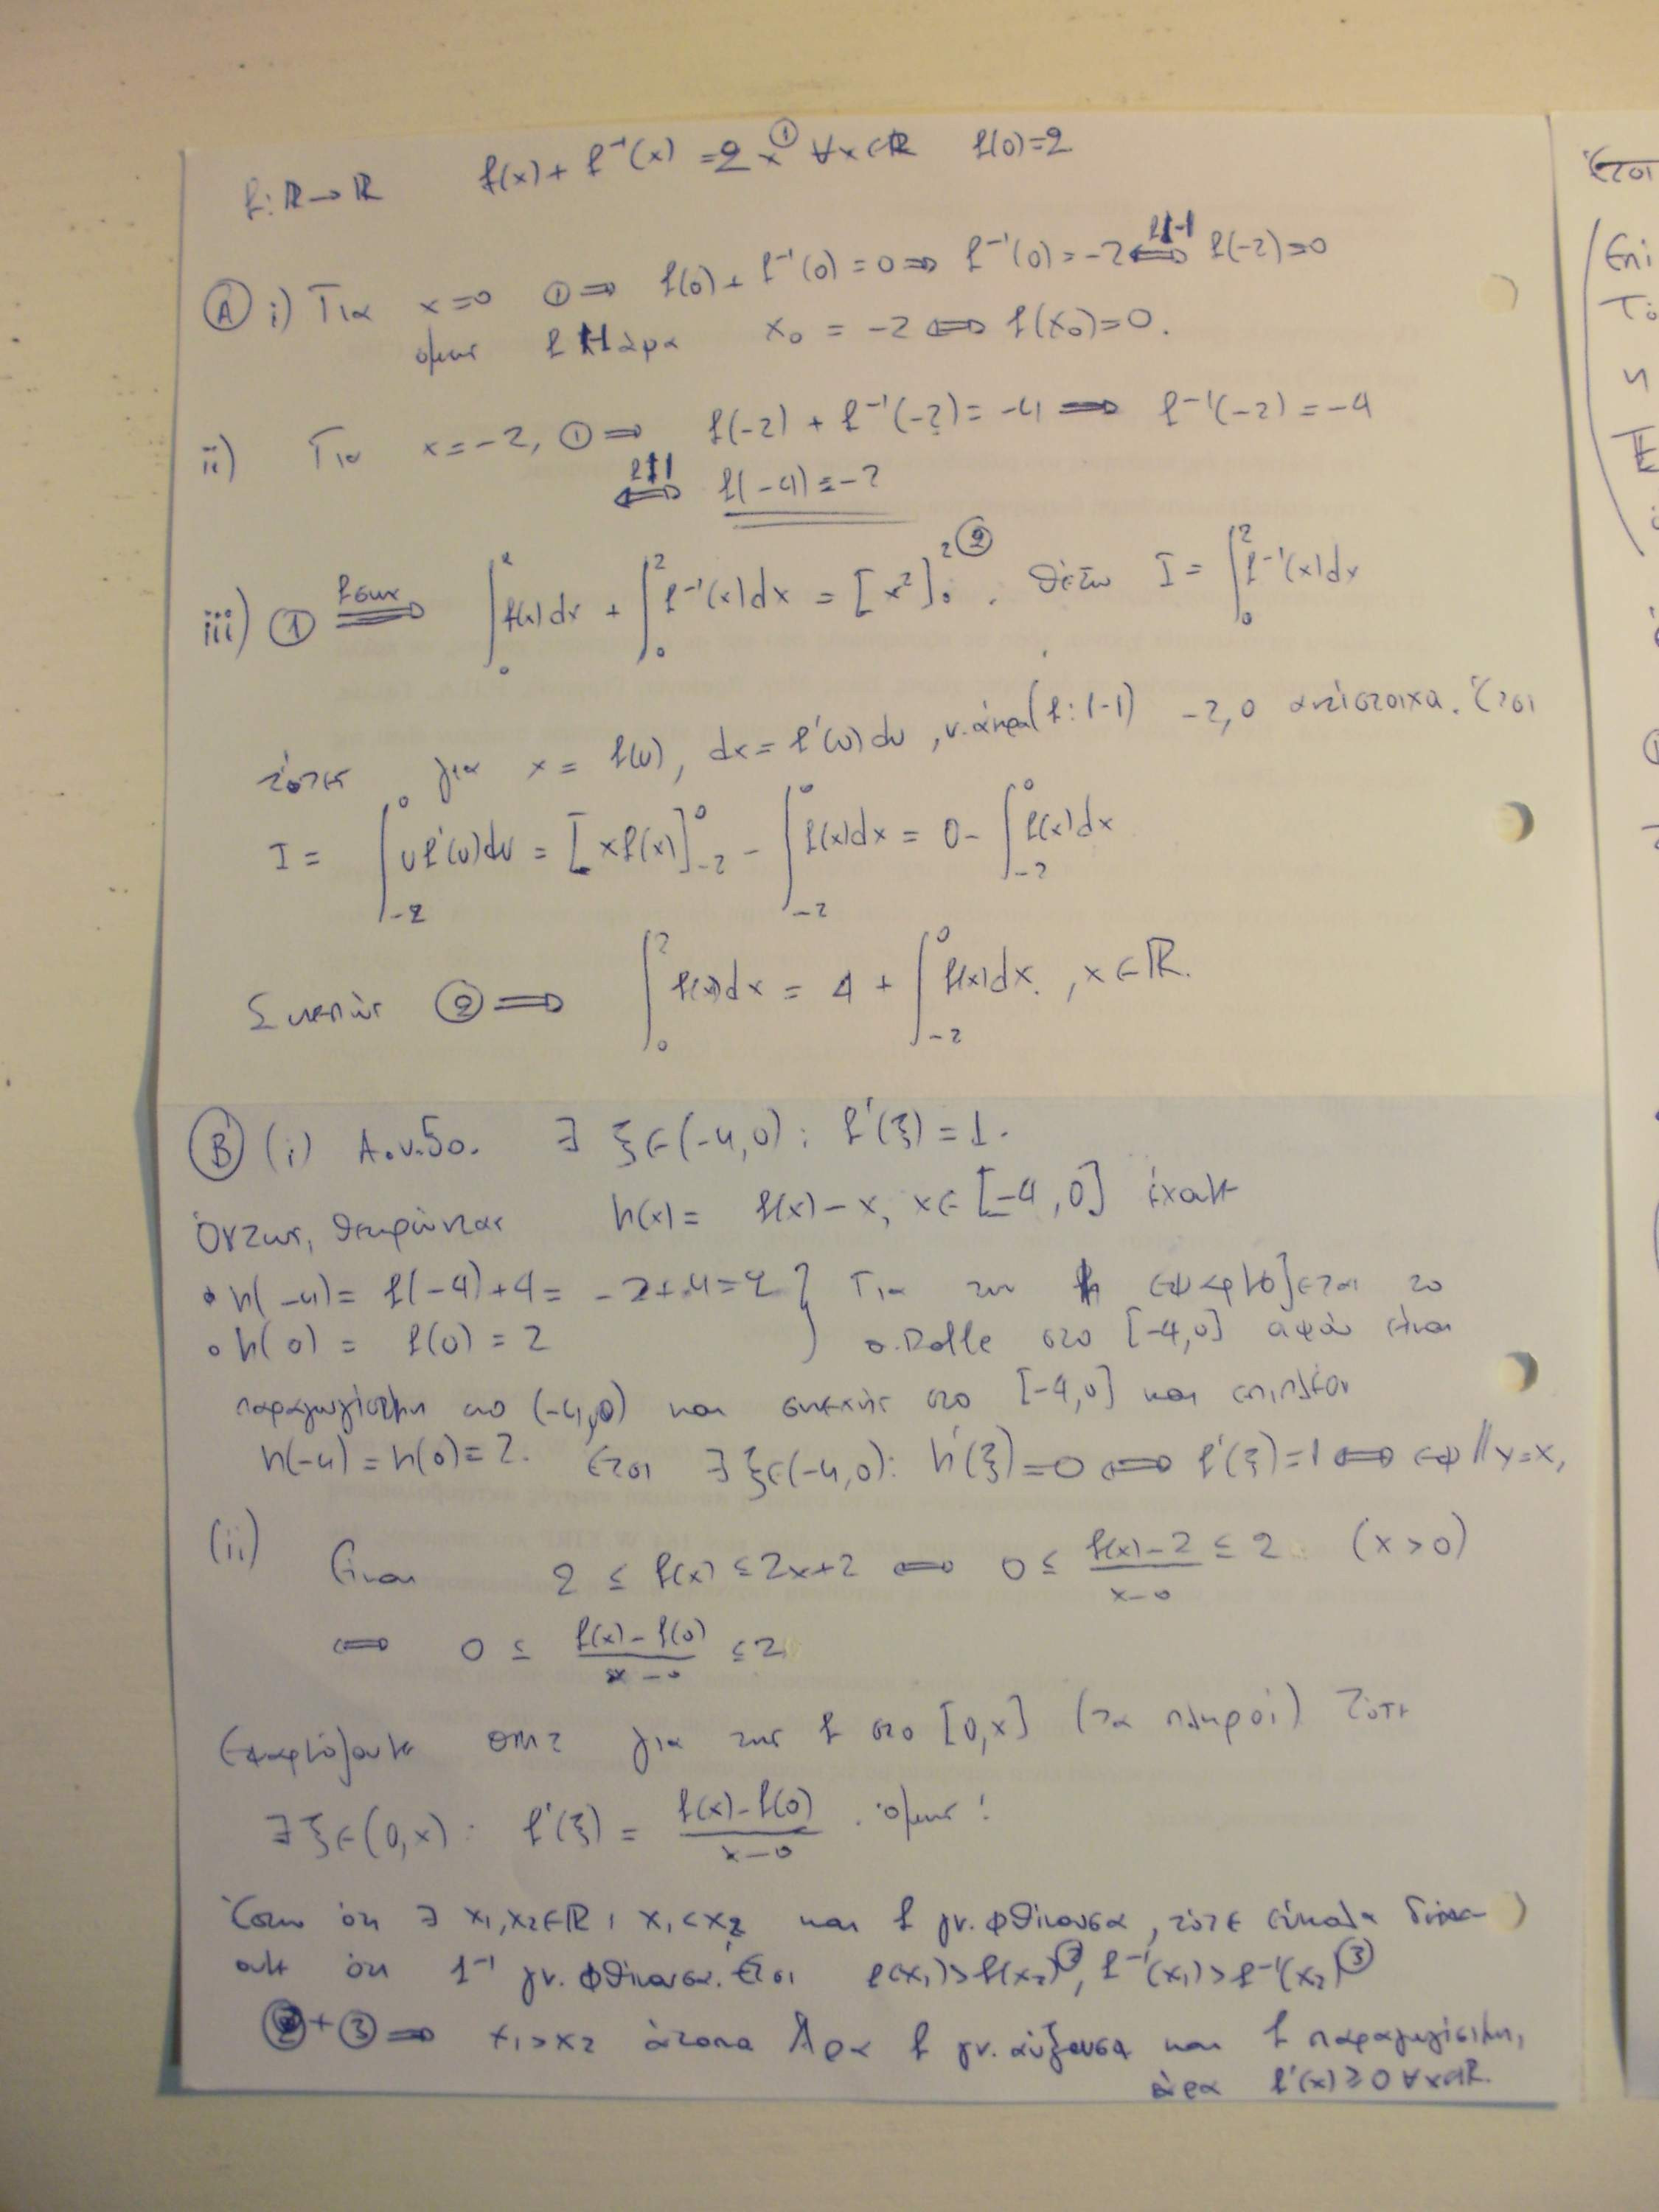 f: ℝ → ℝ f(x) + f⁻¹(x) = 2x ① ∀x∈ℝ f(0)=2
Ⓐ i) Για x=0 ①⇒ f(0) + f⁻¹(0) = 0 ⇒ f⁻¹(0) = -2 ⇔ f(-2)=0
όμως f 1-1 άρα x₀ = -2 ⇔ f(x₀)=0.
ii) Για x=-2, ①⇒ f(-2) + f⁻¹(-2) = -4 ⇒ f⁻¹(-2) = -4
⇔ f(-4) = -2
iii) ① f συν ⇒ ∫₀² f(x)dx + ∫₀² f⁻¹(x)dx = [x²]₀² ②. Θέτω I = ∫₀² f⁻¹(x)dx
τότε για x = f(u), dx = f'(u)du, ν.άκρα (f: 1-1) -2,0 αντίστοιχα. Έτσι
I = ∫₋₂⁰ uf'(u)du = [xf(x)]₋₂⁰ - ∫₋₂⁰ f(x)dx = 0 - ∫₋₂⁰ f(x)dx
Συνεπώς ②⇒ ∫₀² f(x)dx = 4 + ∫₋₂⁰ f(x)dx, x∈ℝ.
Ⓑ (i) Α.ν.δο. ∃ ξ∈(-4,0): f'(ξ) = 1.
Όντως, θεωρώντας h(x) = f(x) - x, x∈[-4,0] έχουμε
• h(-4) = f(-4)+4 = -2+4=2 } Για την h εφαρμόζεται το
• h(0) = f(0) = 2 } θ. Rolle στο [-4,0] αφού είναι
παραγωγίσιμη στο (-4,0) και συνεχής στο [-4,0] και επιπλέον
h(-4) = h(0) = 2. Έτσι ∃ ξ∈(-4,0): h'(ξ)=0 ⇔ f'(ξ)=1 ⇔ εφ // y=x,
(ii) Είναι 2 ≤ f(x) ≤ 2x+2 ⇔ 0 ≤ (f(x)-2)/(x-0) ≤ 2 (x>0)
⇔ 0 ≤ (f(x)-f(0))/(x-0) ≤ 2
Εφαρμόζουμε ΘΜΤ για την f στο [0,x] (τα πληροί) τότε
∃ ξ∈(0,x): f'(ξ) = (f(x)-f(0))/(x-0). όμως:
Έστω ότι ∃ x₁,x₂∈ℝ: x₁<x₂ και f γν. φθίνουσα, τότε εύκολα
ότι f⁻¹ γν. φθίνουσα. Έτσι f(x₁)>f(x₂) ②, f⁻¹(x₁)>f⁻¹(x₂) ③
②+③⇒ x₁>x₂ άτοπο Άρα f γν. αύξουσα και f παραγωγίσιμη,
άρα f'(x)≥0 ∀x∈ℝ.
Έτσι